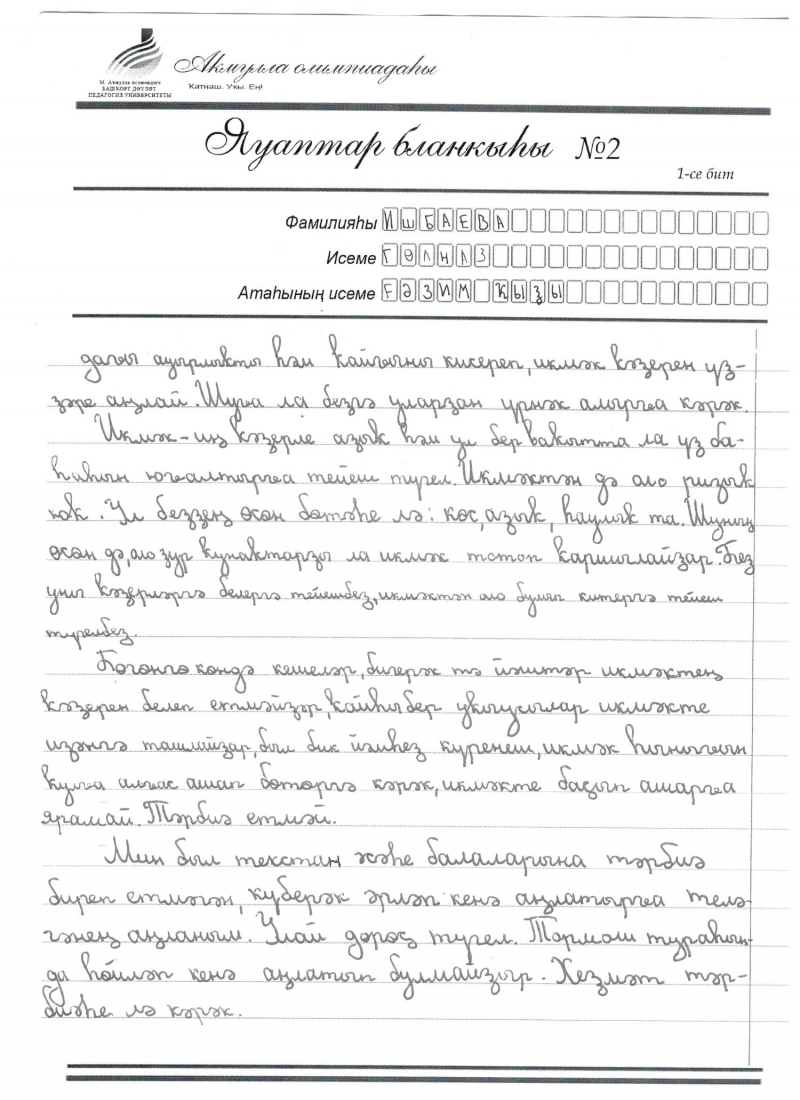 М. Аҡмулла исемендәге
БАШҠОРТ ДӘҮЛӘТ
ПЕДАГОГИЯ УНИВЕРСИТЕТЫ
Аҡмулла олимпиадаһы
Ҡатнаш. Уҡы. Ең!
Яуаптар бланкыһы №2
1-се бит
Фамилияһы ИШБАЕВА
Исеме ГӨЛНАЗ
Атаһының исеме ҒӘЗИМ ҠЫҘЫ
дағы ауырлыҡты һәм ҡайғыны кисереп, икмәк ҡәҙерен үҙ-
ҙәре аңлай. Шуға ла беҙгә уларҙан үрнәк алырға кәрәк.
Икмәк-иң ҡәҙерле аҙыҡ һәм ул бер ваҡытта ла үҙ ба-
һаһын юғалтырға тейеш түгел. Икмәктән дә оло ризыҡ
юҡ. Ул беҙҙең өсөн бөтәһе лә: көс, аҙыҡ, һаулыҡ та. Шуның
өсөн дә, оло ҙур ҡунаҡтарҙы ла икмәк тотоп ҡаршылайҙар. Беҙ
уны ҡәҙерләргә белергә тейешбеҙ, икмәктән оло булып китергә тейеш
түгелбеҙ.
Бөгөнгө көндә кешеләр, бигерәк тә йәштәр икмәктең
ҡәҙерен белеп етмәйҙәр, ҡайһы бер уҡыусылар икмәкте
иҙәнгә ташлайҙар, был бик йәмһеҙ күренеш, икмәк һынығын
ҡулға алғас ашап бөтөргә кәрәк, икмәкте баҫып ашарға
ярамай. Тәрбиә етмәй.
Мин был текстан әсәһе балаларына тәрбиә
биреп етмәгән, күберәк әрләп кенә аңлатырға телә-
гәнең аңланым. Улай дөрөҫ түгел. Тормош тураһын-
да һөйләп кенә аңлатып булмайҙыр. Хеҙмәт тәр-
биәһе лә кәрәк.